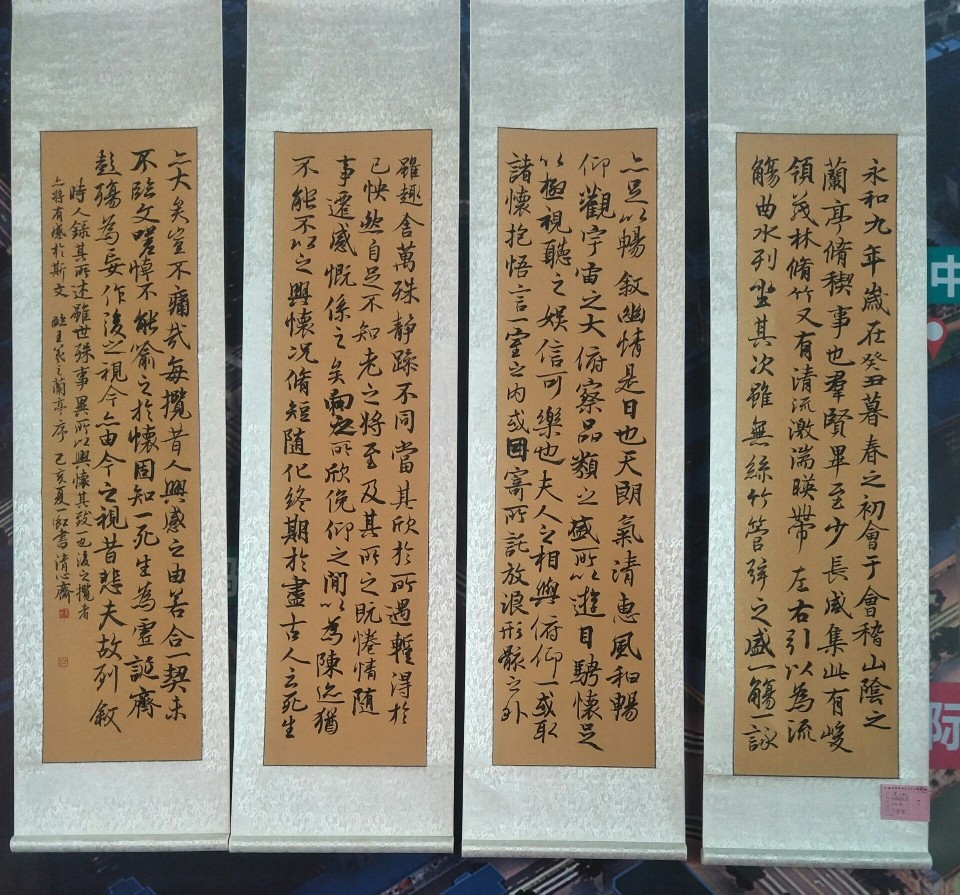 永和九年歲在癸丑暮春之初會于會稽山陰之
蘭亭脩稧事也羣賢畢至少長咸集此有峻
領茂林脩竹又有清流激湍暎帶左右引以為流
觴曲水列坐其次雖無絲竹管弦之盛一觴一詠
亦足以暢叙幽情是日也天朗氣清惠風和暢
仰觀宇宙之大俯察品類之盛所以遊目騁懷足
以極視聽之娛信可樂也夫人之相與俯仰一或取
諸懷抱悟言一室之内或因寄所託放浪形骸之外
雖趣舍萬殊静躁不同當其欣於所遇暫得於
己怏然自足不知老之將至及其所之既惓情隨
事遷感慨係之矣向之所欣俛仰之間以為陳迹猶
不能不以之興懷况脩短随化終期於盡古人云死生
亦大矣豈不痛哉每攬昔人興感之由若合一契未
不臨文嗟悼不能喻之於懷固知一死生為虛誕齊
彭殤為妄作後之視今亦由今之視昔悲夫故列叙
時人錄其所述雖世殊事異所以興懷其致一也後之攬者
亦將有感於斯文 臨王羲之蘭亭序 己亥夏一虹書清心齋
中
际